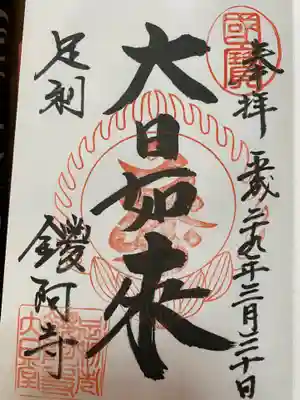 國寶
奉拝
平成二九年三月二十日
大日如來
足利
鑁阿寺